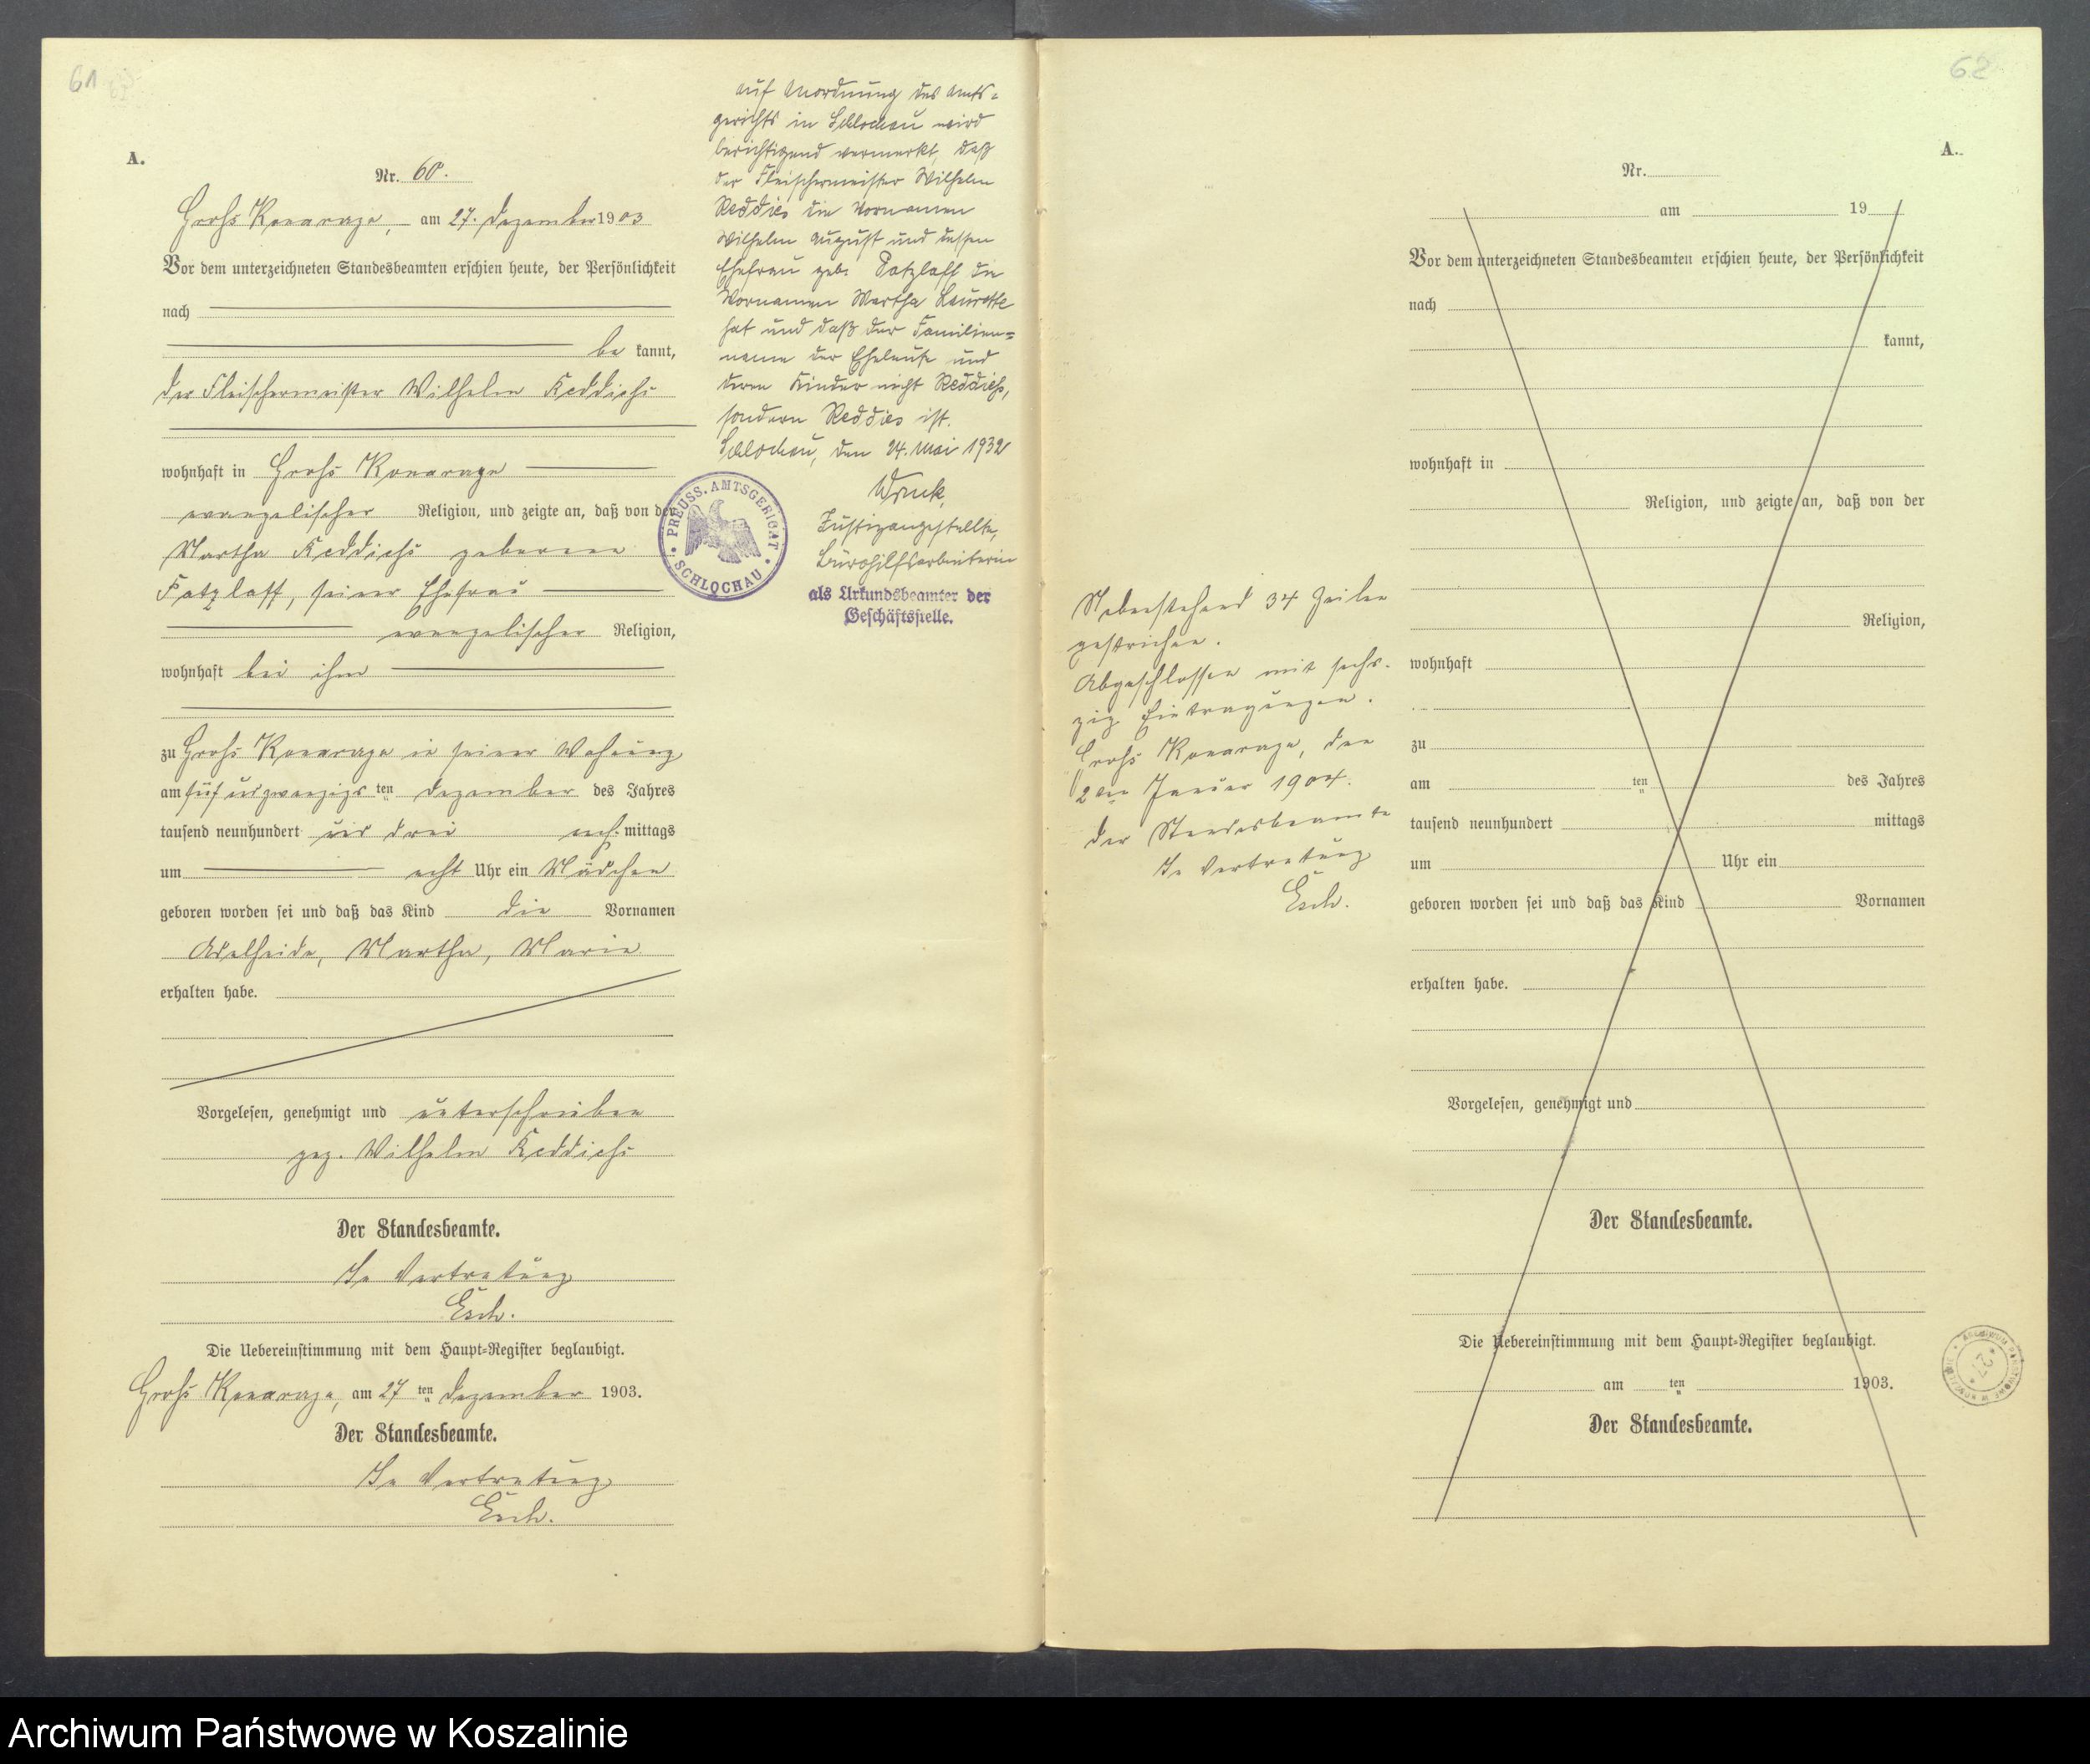 61
A.
Nr. 60.
Groß Konarzyn, am 27. Dezember 1903
Vor dem unterzeichneten Standesbeamten erschien heute, der Persönlichkeit
nach
be kannt,
der Fleischermeister Wilhelm Reddiehs
wohnhaft in Groß Konarzyn
evangelischer Religion, und zeigte an, daß von der
Martha Reddiehs geborene
Patzlaff, seiner Ehefrau
evangelischer Religion,
wohnhaft bei ihm
zu Groß Konarzyn in seiner Wohnung
am fünfundzwanzigsten Dezember des Jahres
tausend neunhundert und drei nach mittags
um acht Uhr ein Mädchen
geboren worden sei und daß das Kind die Vornamen
Adelheide, Martha, Marie
erhalten habe.
Vorgelesen, genehmigt und unterschrieben
gez. Wilhelm Reddiehs
Der Standesbeamte.
In Vertretung
Esch.
Die Uebereinstimmung mit dem Haupt-Register beglaubigt.
Groß Konarzyn, am 27 ten Dezember 1903.
Der Standesbeamte.
In Vertretung
Esch.
Auf Anordnung des Amts-
gerichts in Schlochau wird
berichtigend vermerkt, daß
der Fleischermeister Wilhelm
Reddies die Vornamen
Wilhelm August und dessen
Ehefrau geb. Patzlaff die
Vornamen Martha Laurette
hat und daß der Familien-
name der Eheleute und
deren Kinder nicht Reddiehs,
sondern Reddies ist.
Schlochau, den 24. Mai 1932
Justizangestellte,
Bürohilfsarbeiterin
als Urkundsbeamter der
Geschäftsstelle.
PREUSS. AMTSGERICHT
SCHLOCHAU
62
A.
Nebenstehend 34 Zeilen
gestrichen.
Abgeschlossen mit sech-
zig Eintragungen.
Groß Konarzyn, den
2ten Januar 1904.
Der Standesbeamte
In Vertretung
Esch.
Nr.
am 19
Vor dem unterzeichneten Standesbeamten erschien heute, der Persönlichkeit
nach
kannt,
wohnhaft in
Religion, und zeigte an, daß von der
Religion,
wohnhaft
zu
am ten des Jahres
tausend neunhundert mittags
um Uhr ein
geboren worden sei und daß das Kind Vornamen
erhalten habe.
Vorgelesen, genehmigt und
Der Standesbeamte.
Die Uebereinstimmung mit dem Haupt-Register beglaubigt.
am ten 1903.
Der Standesbeamte.
Archiwum Państwowe w Koszalinie